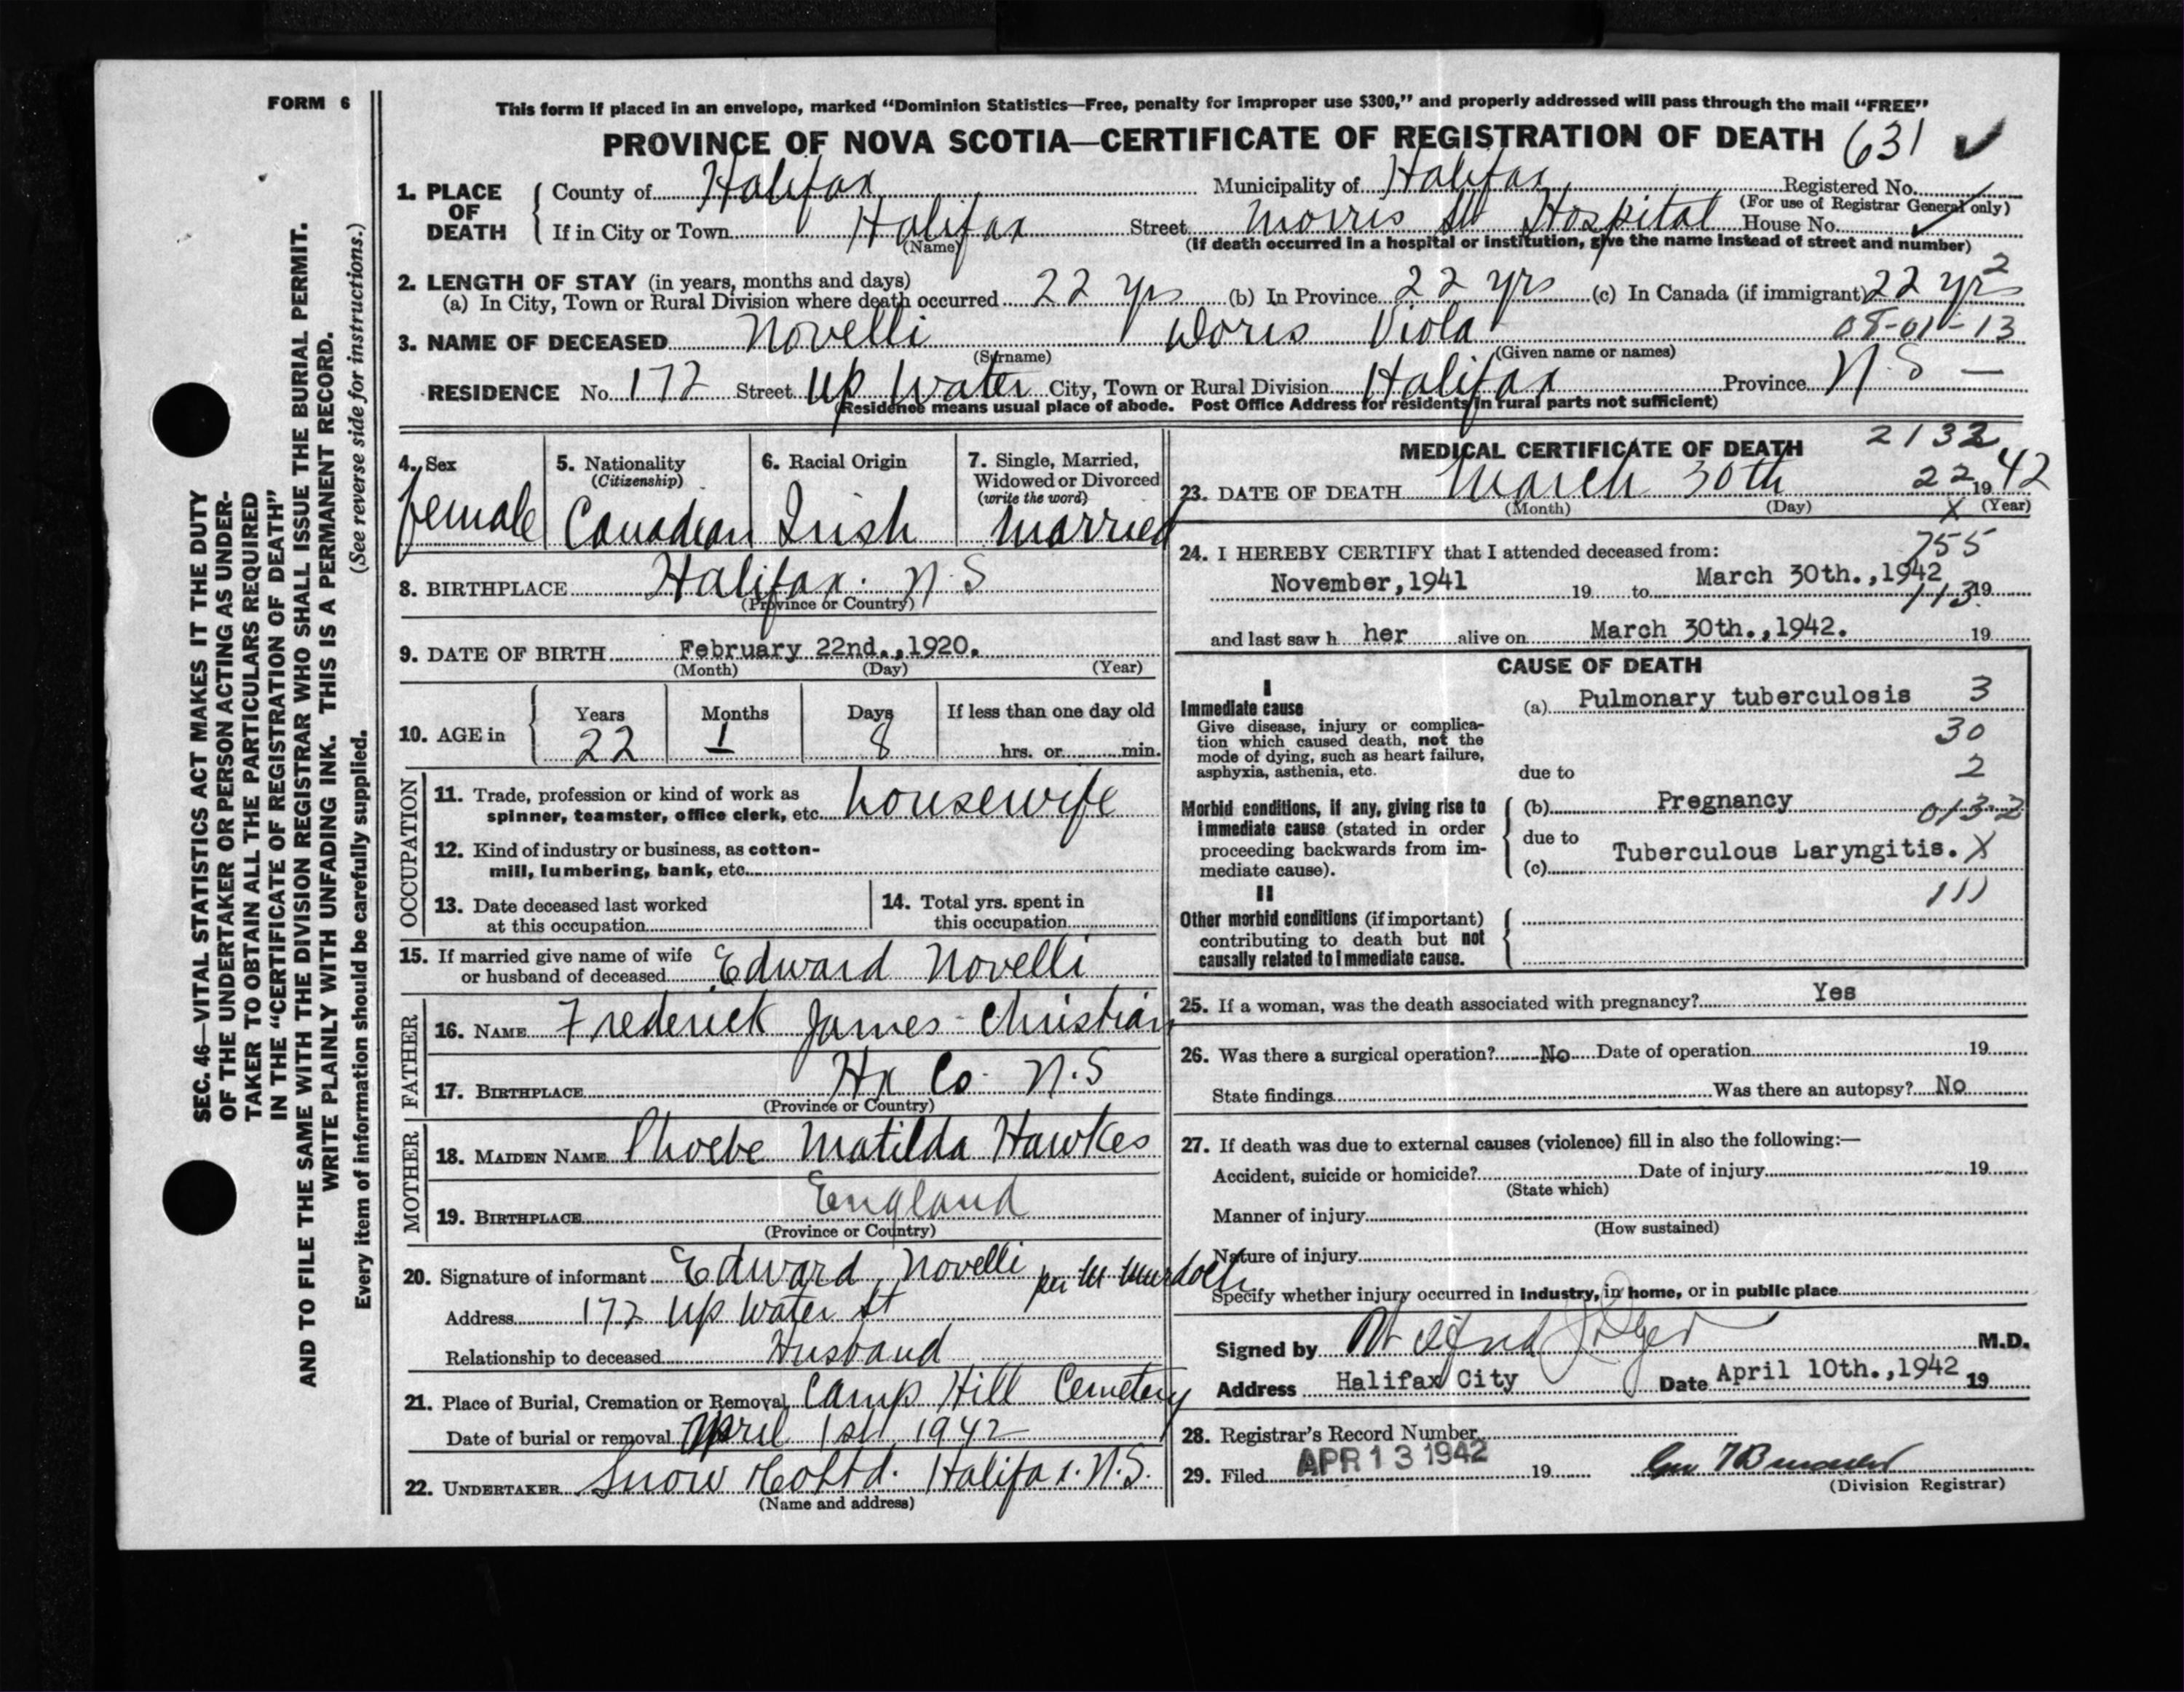 FORM 6
This form if placed in an envelope, marked “Dominion Statistics—Free, penalty for improper use $300,” and properly addressed will pass through the mail “FREE”
PROVINCE OF NOVA SCOTIA—CERTIFICATE OF REGISTRATION OF DEATH 631 ✓
1. PLACE OF DEATH
County of Halifax Municipality of Halifax Registered No.
(For use of Registrar General only)
If in City or Town Halifax Street Morris St Hospital House No.
(Name) (If death occurred in a hospital or institution, give the name instead of street and number)
2. LENGTH OF STAY (in years, months and days) 2
(a) In City, Town or Rural Division where death occurred 22 yrs (b) In Province 22 yrs (c) In Canada (if immigrant) 22 yrs
3. NAME OF DECEASED Novelli Doris Viola 08-01-13
(Surname) (Given name or names)
RESIDENCE No. 172 Street Up Water City, Town or Rural Division Halifax Province N.S —
(Residence means usual place of abode. Post Office Address for residents in rural parts not sufficient)
4. Sex female
5. Nationality (Citizenship) Canadian
6. Racial Origin Irish
7. Single, Married, Widowed or Divorced (write the word) Married
8. BIRTHPLACE Halifax. N.S
(Province or Country)
9. DATE OF BIRTH February 22nd.,1920.
(Month) (Day) (Year)
10. AGE in Years 22 Months 1 Days 8 If less than one day old hrs. or min.
OCCUPATION
11. Trade, profession or kind of work as
spinner, teamster, office clerk, etc. housewife
12. Kind of industry or business, as cotton-
mill, lumbering, bank, etc.
13. Date deceased last worked
at this occupation
14. Total yrs. spent in
this occupation
15. If married give name of wife
or husband of deceased Edward Novelli
FATHER
16. NAME Frederick James Christian
17. BIRTHPLACE Hx Co. N.S
(Province or Country)
MOTHER
18. MAIDEN NAME Phoebe Matilda Hawkes
19. BIRTHPLACE England
(Province or Country)
20. Signature of informant Edward Novelli per M Murdoch
Address 172 Up Water St
Relationship to deceased Husband
21. Place of Burial, Cremation or Removal Camp Hill Cemetery
Date of burial or removal April 1st 1942
22. UNDERTAKER Snow & Co Ltd. Halifax. N.S.
(Name and address)
MEDICAL CERTIFICATE OF DEATH 2132
23. DATE OF DEATH March 30th 22 1942
(Month) (Day) X (Year)
24. I HEREBY CERTIFY that I attended deceased from: 755
November,1941 19 to March 30th.,1942 19
113
and last saw h her alive on March 30th.,1942. 19
CAUSE OF DEATH
I
Immediate cause
Give disease, injury or complica-
tion which caused death, not the
mode of dying, such as heart failure,
asphyxia, asthenia, etc.
(a) Pulmonary tuberculosis 3
30
due to 2
Morbid conditions, if any, giving rise to
immediate cause (stated in order
proceeding backwards from im-
mediate cause).
(b) Pregnancy 013-2
due to
(c) Tuberculous Laryngitis. X
111
II
Other morbid conditions (if important)
contributing to death but not
causally related to immediate cause.
25. If a woman, was the death associated with pregnancy? Yes
26. Was there a surgical operation? No Date of operation 19
State findings Was there an autopsy? No
27. If death was due to external causes (violence) fill in also the following:—
Accident, suicide or homicide? Date of injury 19
(State which)
Manner of injury
(How sustained)
Nature of injury
Specify whether injury occurred in industry, in home, or in public place
Signed by M.D.
Address Halifax City Date April 10th.,1942 19
28. Registrar's Record Number
29. Filed APR 13 1942 19
(Division Registrar)
SEC. 46—VITAL STATISTICS ACT MAKES IT THE DUTY
OF THE UNDERTAKER OR PERSON ACTING AS UNDER-
TAKER TO OBTAIN ALL THE PARTICULARS REQUIRED
IN THE “CERTIFICATE OF REGISTRATION OF DEATH”
AND TO FILE THE SAME WITH THE DIVISION REGISTRAR WHO SHALL ISSUE THE BURIAL PERMIT.
WRITE PLAINLY WITH UNFADING INK. THIS IS A PERMANENT RECORD.
Every item of information should be carefully supplied. (See reverse side for instructions.)